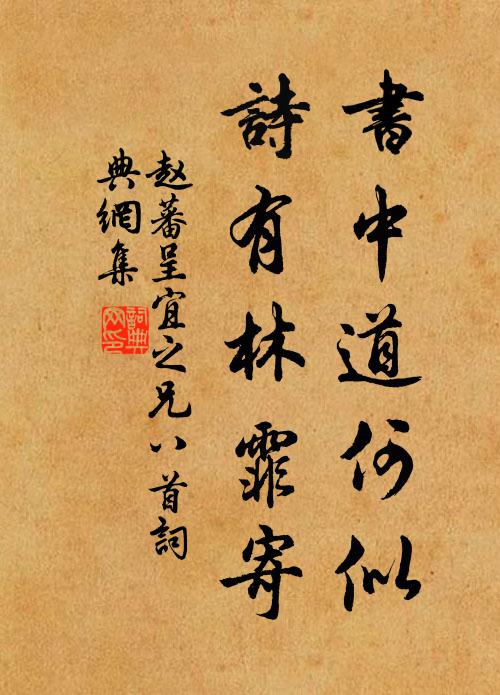 書中道何似
詩有林霏寄
赵蕃呈宜之兄八首詞
典網集
詞典網印